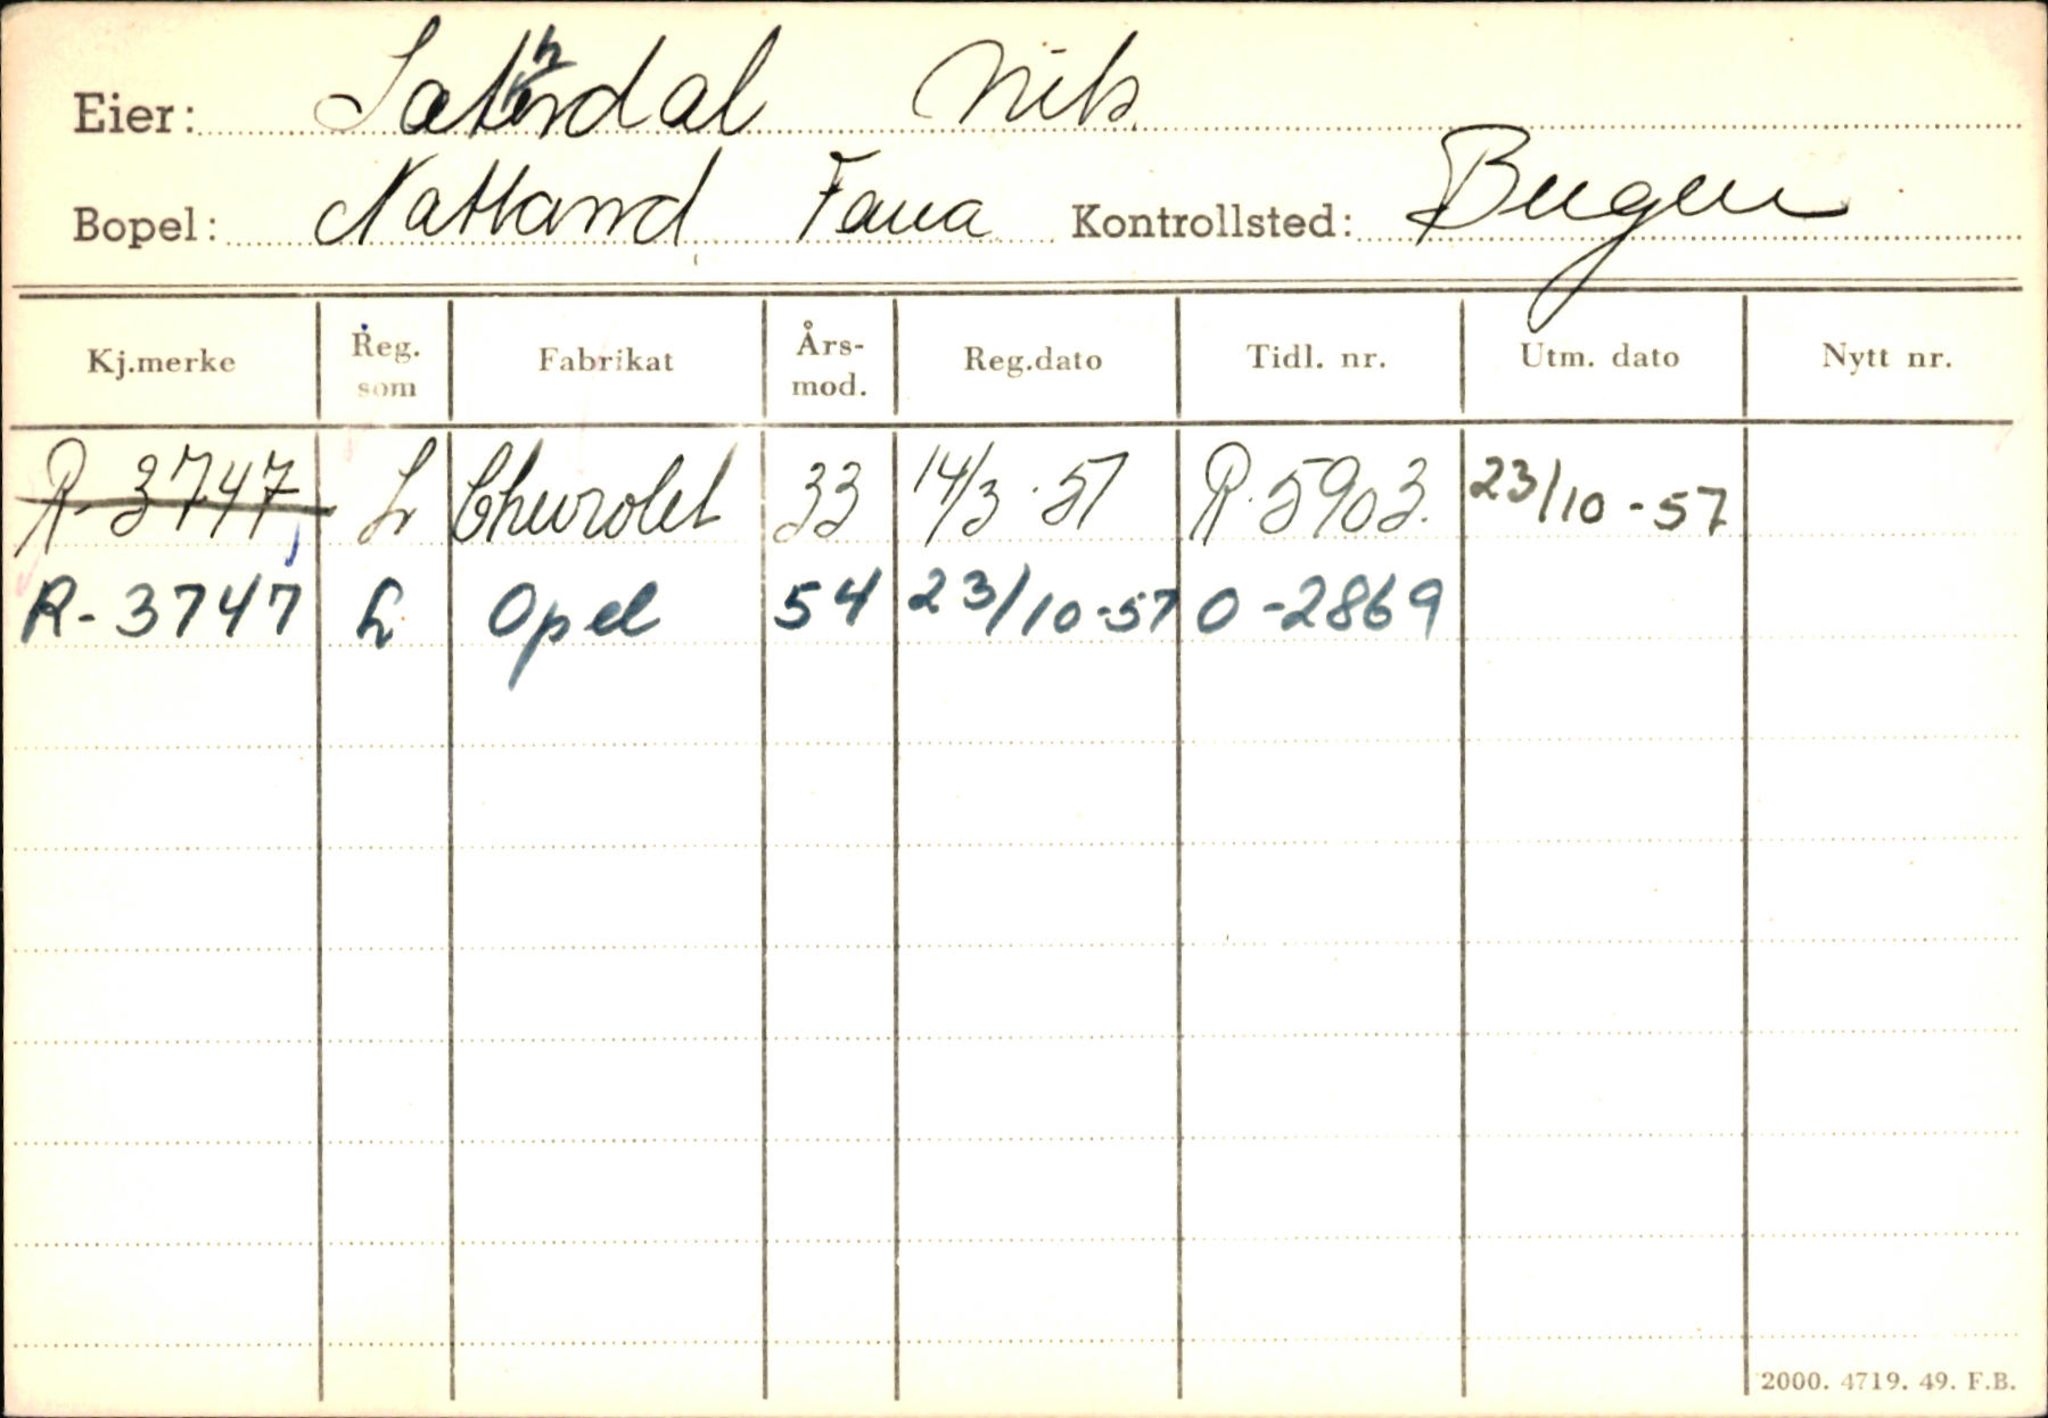 Eier: Sætrdal Nils
Bopel: Natland Fana Kontrollsted: Bergen
Kj.merke Reg. som Fabrikat Års-mod. Reg.dato Tidl. nr. Utm. dato Nytt nr.
R-3747 L Chevrolet 33 14/3-51 R-5903. 23/10-57
R-3747 L Opel 54 23/10-57 O-2869
2000. 4719. 49. F.B.